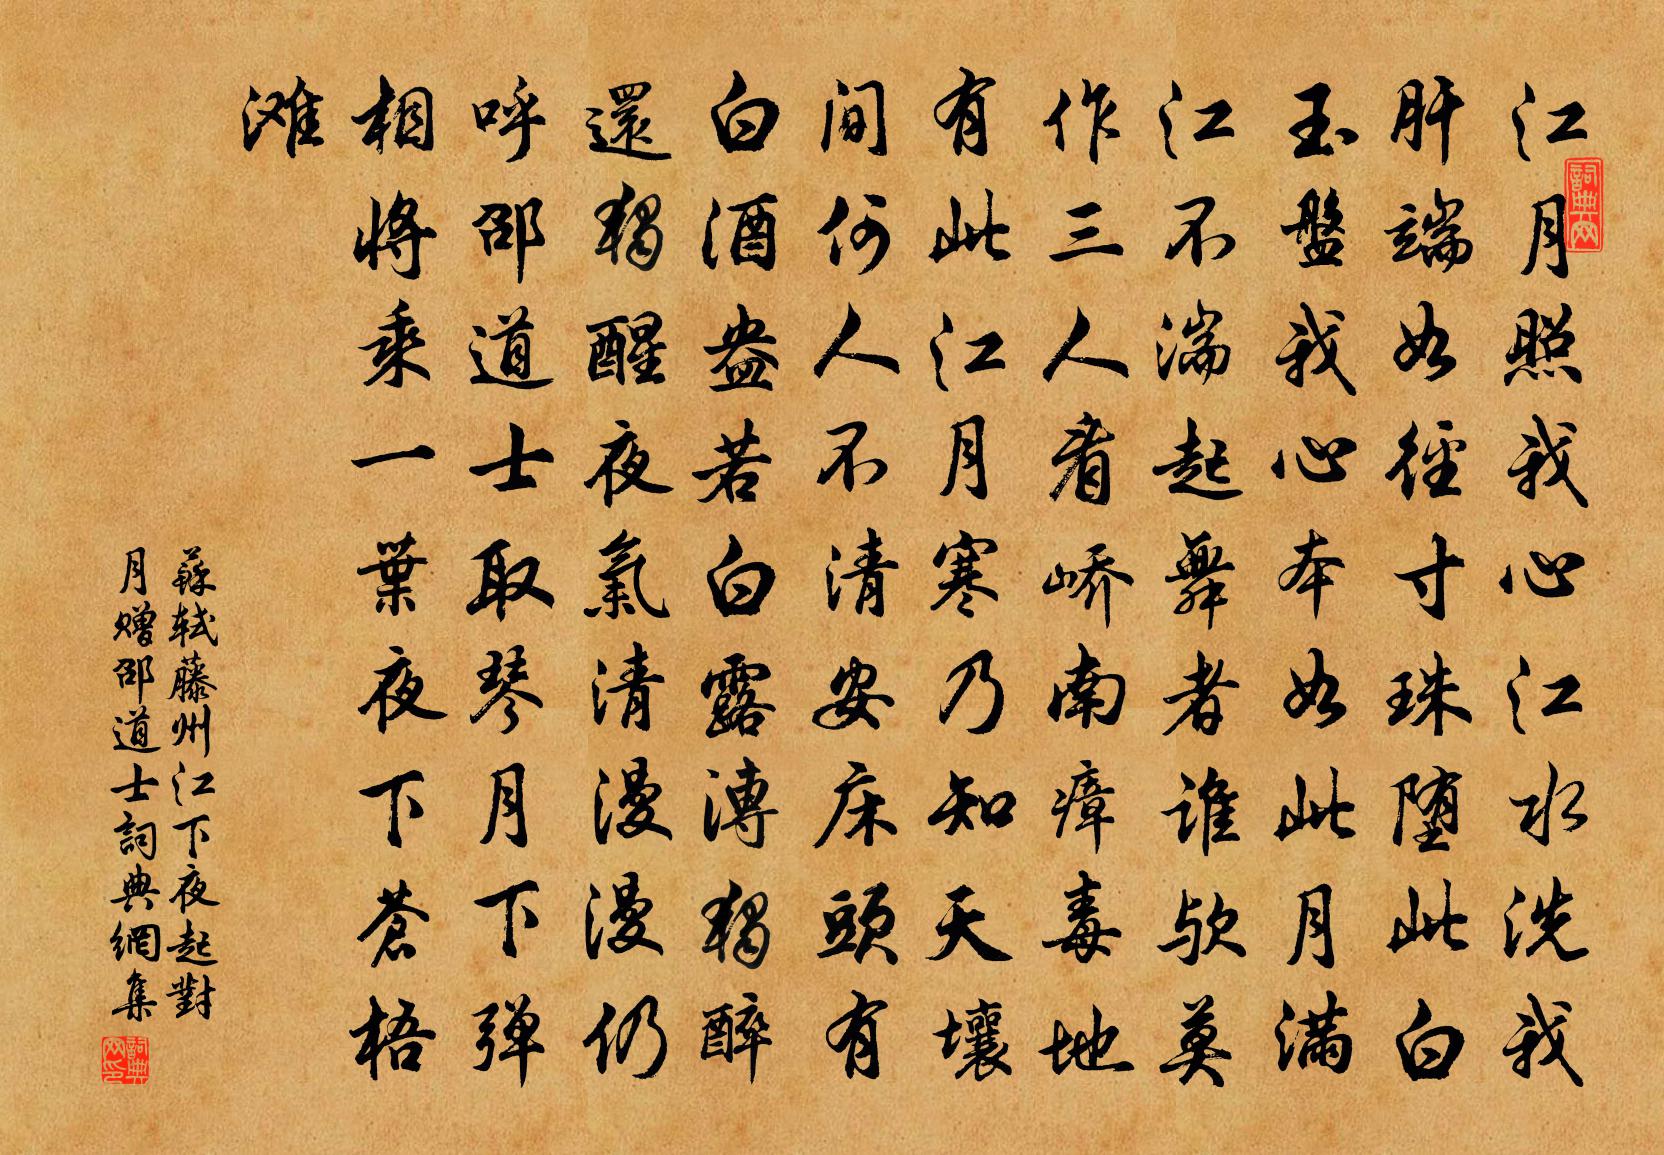 江月照我心江水洗我
肝端如徑寸珠墮此白
玉盤我心本如此月滿
江不湍起舞者誰歟莫
作三人看嶠南瘴毒地
有此江月寒乃知天壤
間何人不清安床頭有
白酒盎若白露漙獨醉
還獨醒夜氣清漫漫仍
呼邵道士取琴月下彈
相將乘一葉夜下蒼梧
滩
蘇軾藤州江下夜起對
月贈邵道士詞典網集
詞典网
詞典网印